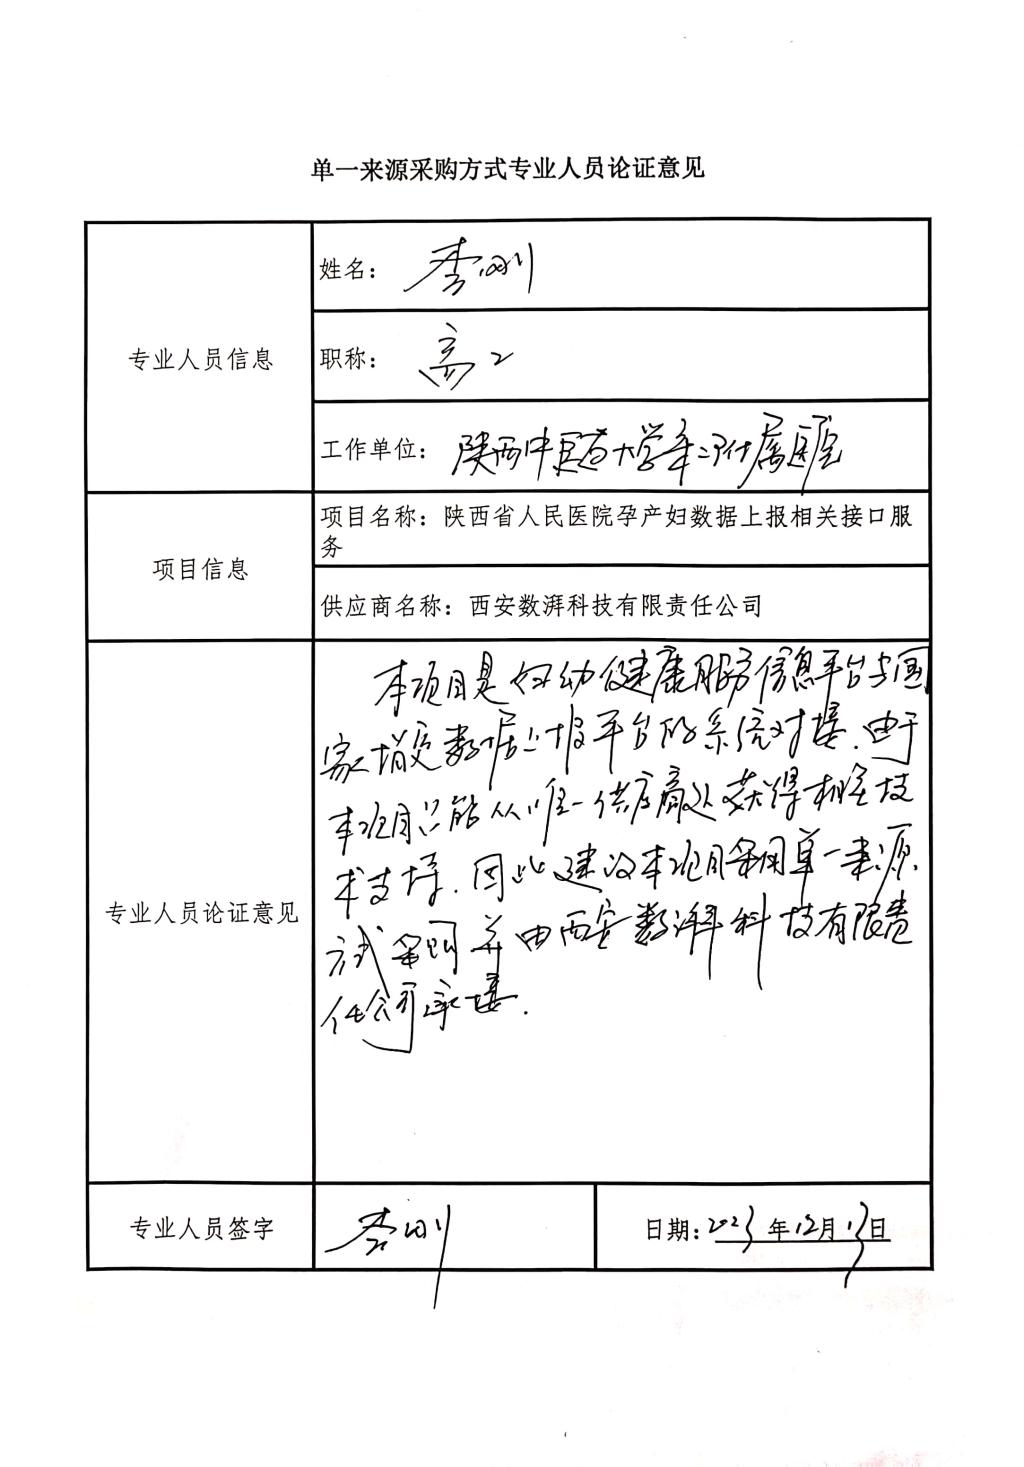 单一来源采购方式专业人员论证意见
专业人员信息
姓名： 李刚
职称： 高工
工作单位： 陕西中医药大学第二附属医院
项目信息
项目名称：陕西省人民医院孕产妇数据上报相关接口服
务
供应商名称：西安数湃科技有限责任公司
专业人员论证意见
本项目是妇幼健康服务信息平台与国
家 数据上报平台的系统对接.由于
本项目只能从唯一供应商处获得相关技
术支持.因此建议本项目采用单一来源
方式采购并由西安数湃科技有限责
任公司承接.
专业人员签字
李刚
日期:2023年12月13日